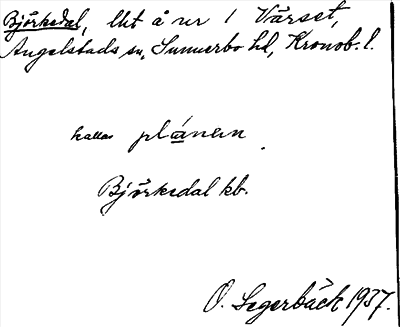 Björkedal, lht å nr 1 Värset,
Angelstads sn, Sunnerbo hd, Kronob. l.
kallas plánen
Björkedal kb.
O. Segerbäck 1937.